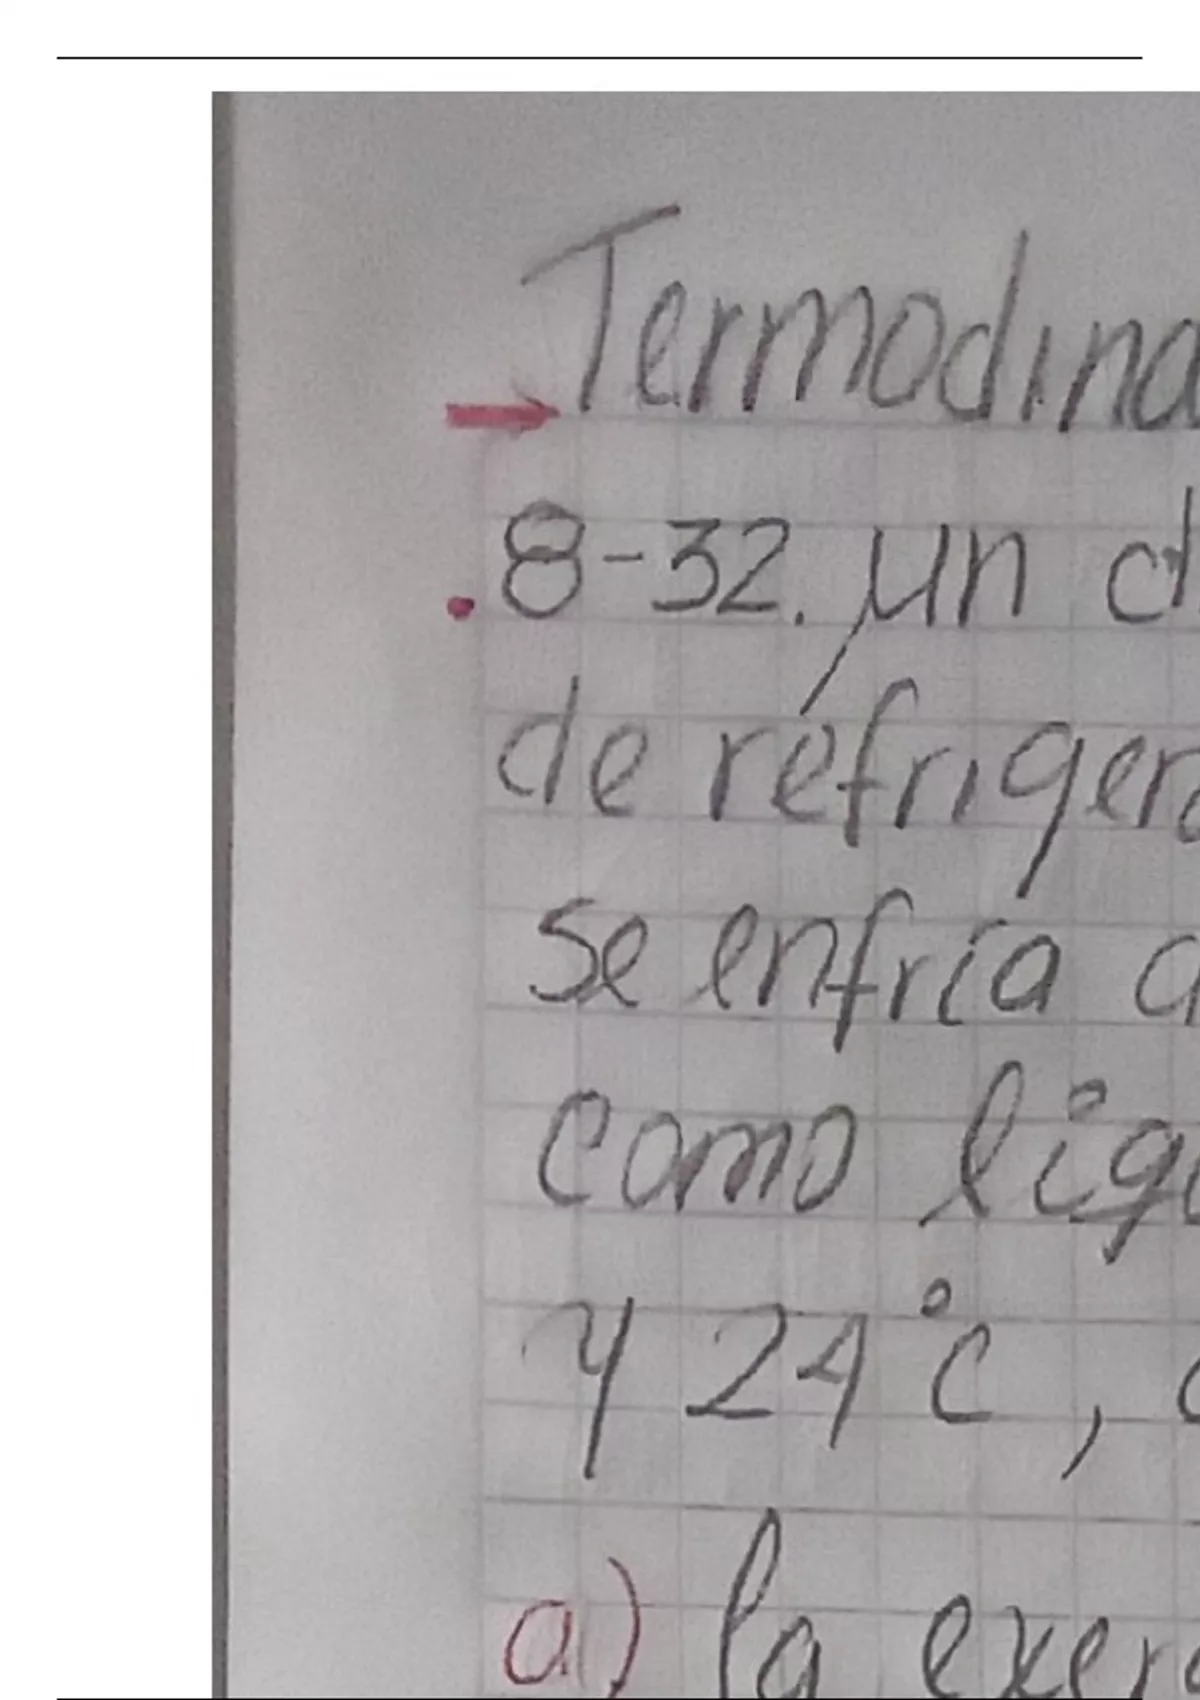 Termodiná
8-32. un d
de refrigera
se enfría a
como líqu
y 24°C, c
a) la exer